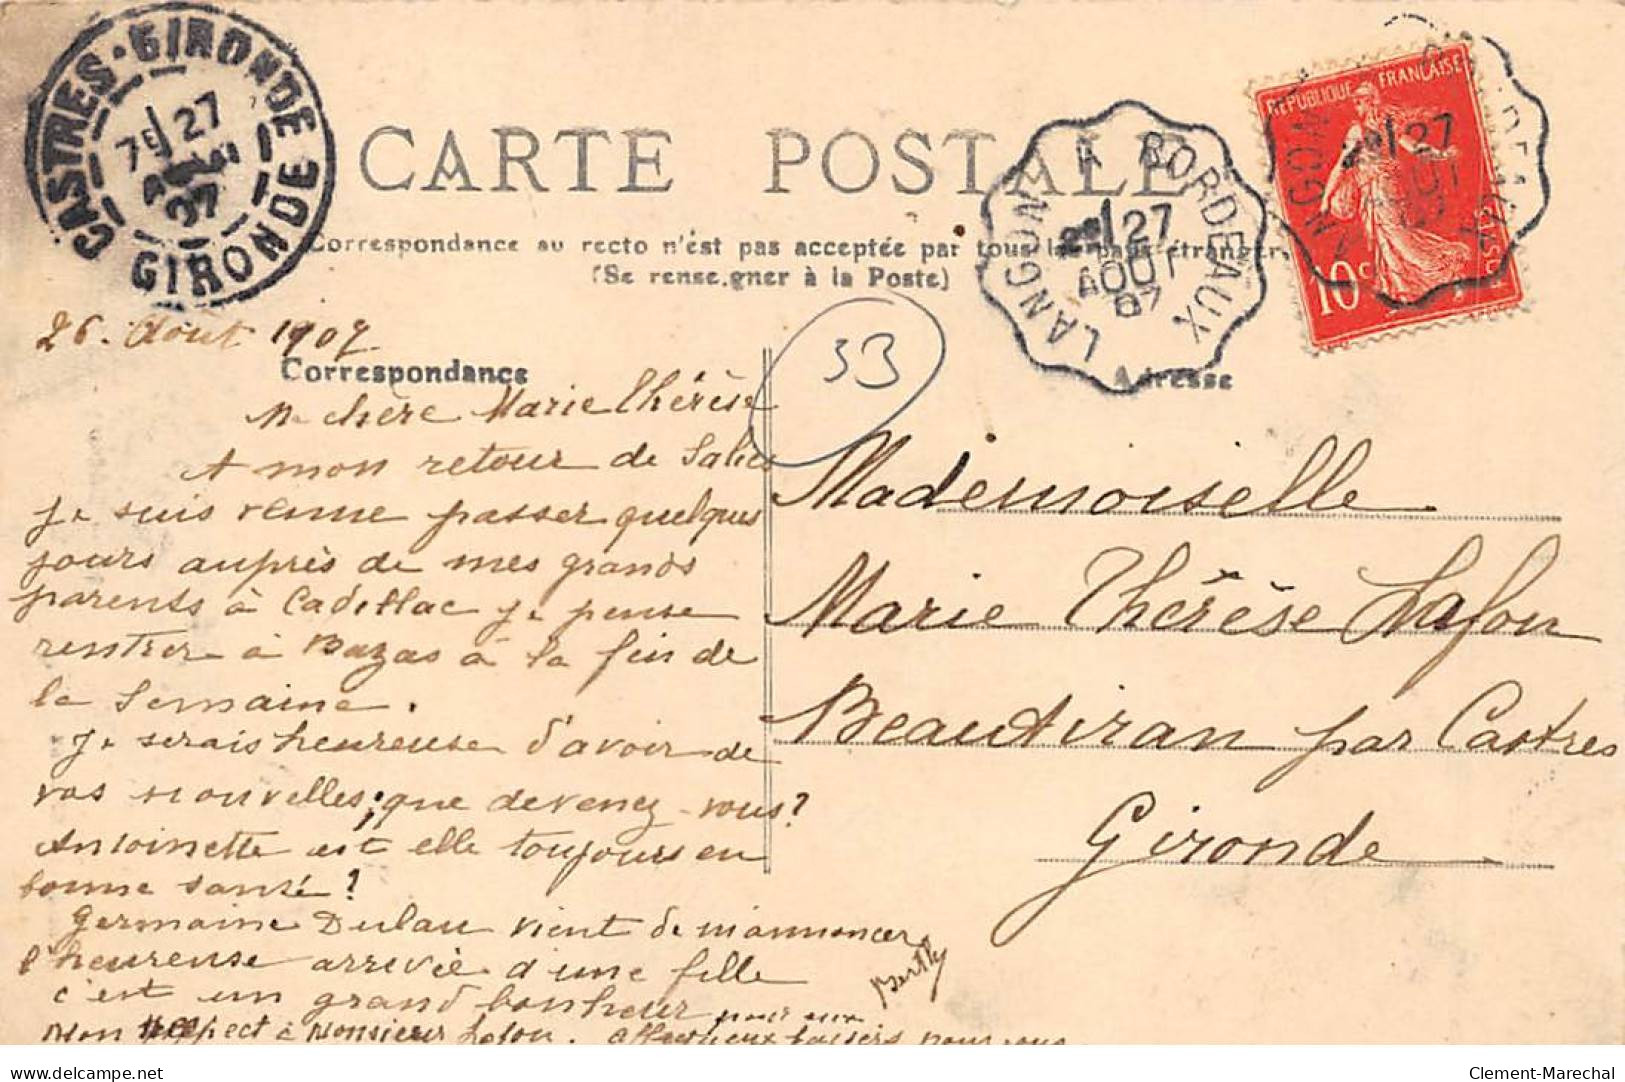 CASTRES-GIRONDE
GIRONDE
27
07
CARTE POSTALE
LANGON A BORDEAUX
27
AOUT
07
REPUBLIQUE FRANÇAISE
10c
27
Correspondance au recto n'est pas acceptée par tous les pays étrangers
(Se renseigner à la Poste)
26. Août 1907
33
Correspondance
Adresse
Ma chère Marie Thérèse
A mon retour de Salies
je suis venue passer quelques
jours auprès de mes grands
parents à Cadillac je pense
rentrer à Bazas à la fin de
la semaine.
Je serais heureuse d'avoir de
vos nouvelles, que devenez-vous?
Antoinette est elle toujours en
bonne santé?
Germaine Dulau vient de m'annoncer
l'heureuse arrivée d'une fille
c'est un grand bonheur pour eux
Mon respect à Monsieur Lafon. Affectueux baisers pour vous
Berthe
Mademoiselle
Marie Thérèse Lafon
Beautiran par Castres
Gironde
Clement-Marechal